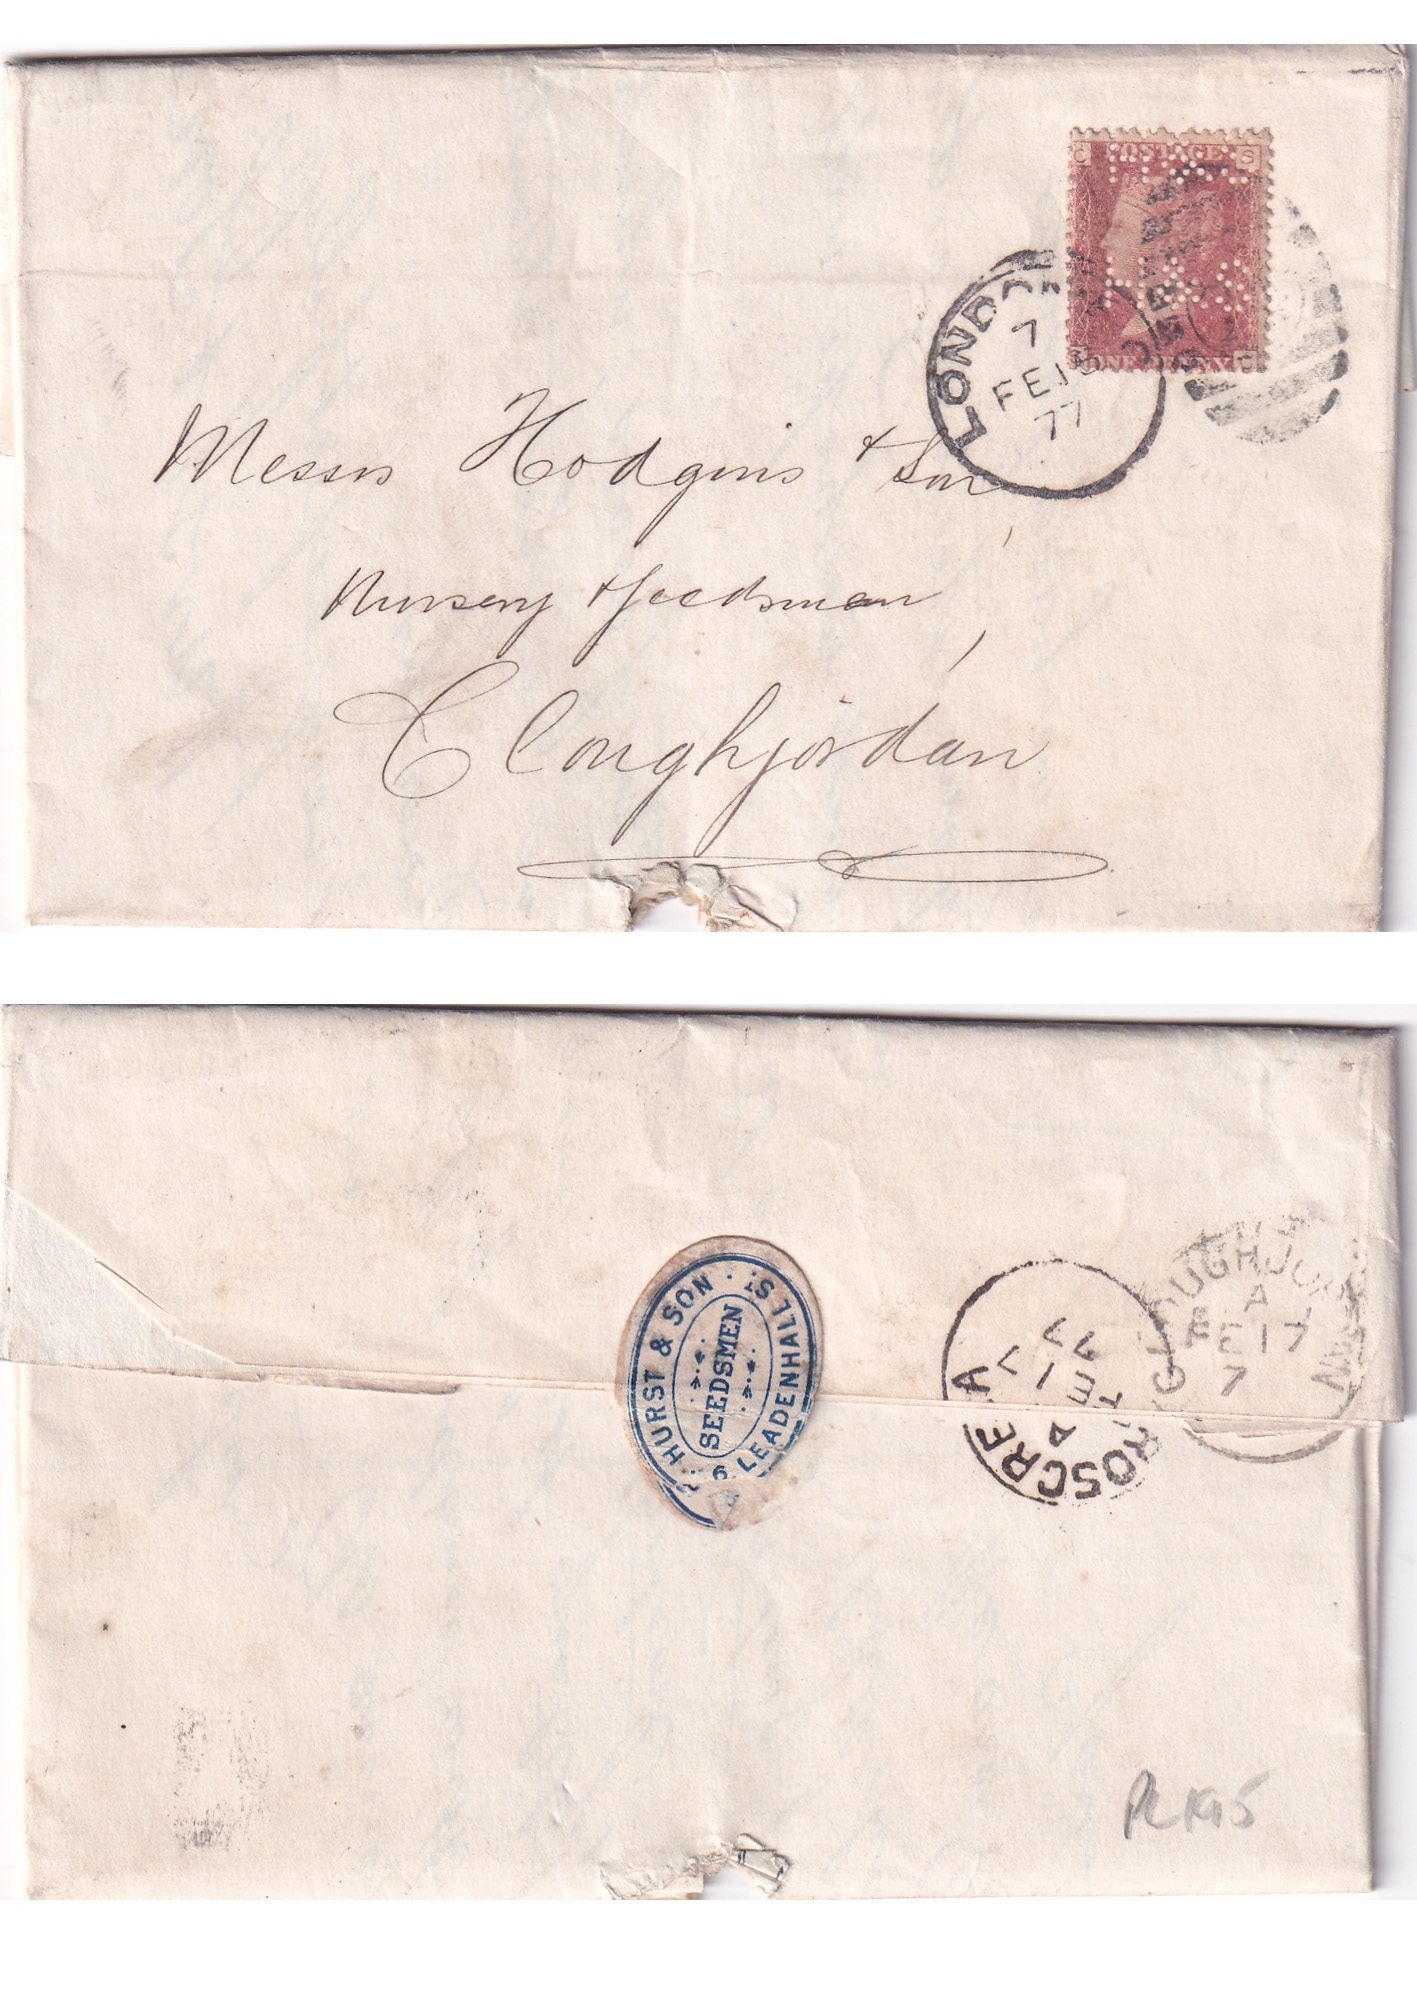 C POSTAGE S
ONE PENNY
LONDON
7
FE 15
77
Messrs Hodgins & Son,
Nursery & Seedsmen,
Cloughjordan
HURST & SON.
SEEDSMEN
6. LEADENHALL ST.
ROSCREA
A
FE 17
77
CLOUGHJORDAN
A
FE 17
7
PL 195